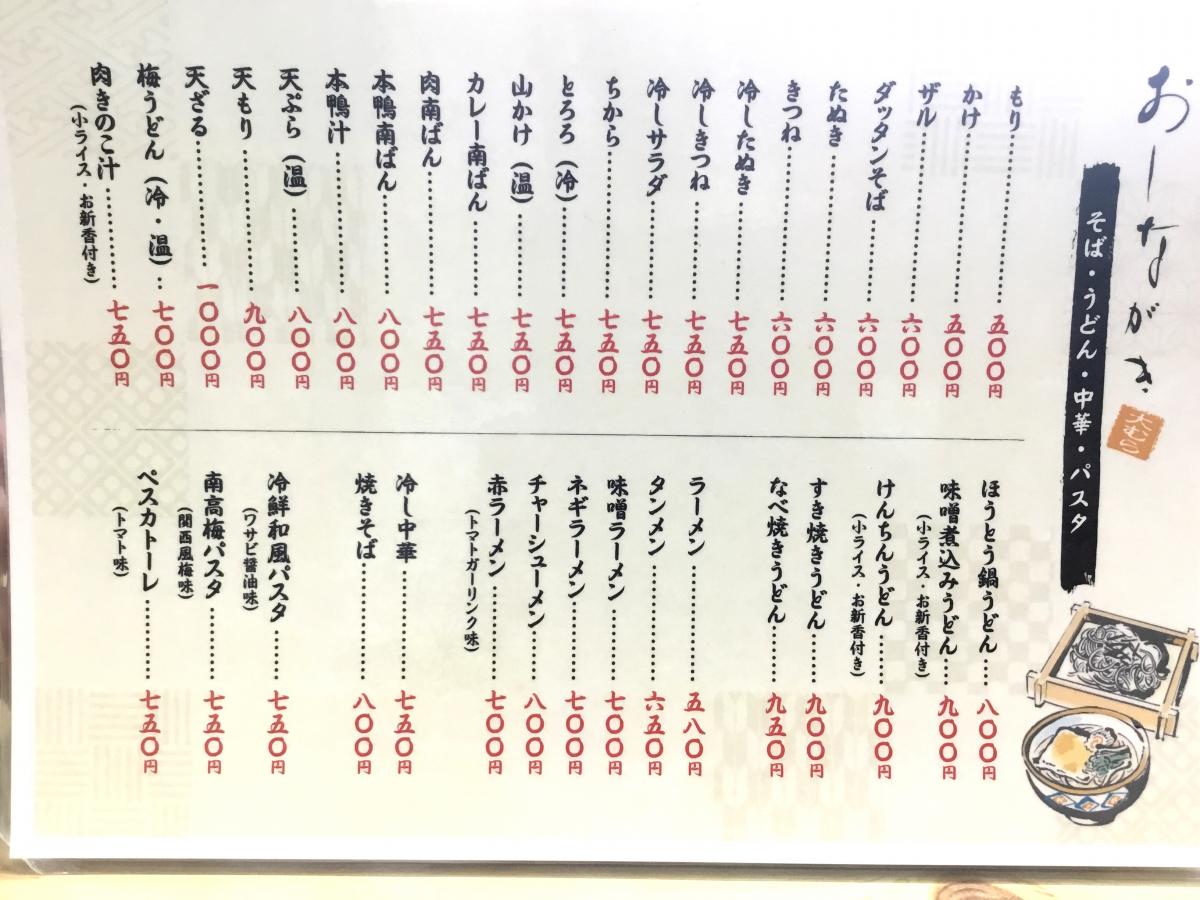 おーしながき
大むら
そば・うどん・中華・パスタ
もり 五〇〇円
かけ 五〇〇円
ザル 六〇〇円
ダッタンそば 六〇〇円
たぬき 六〇〇円
きつね 六〇〇円
冷したぬき 七五〇円
冷しきつね 七五〇円
冷しサラダ 七五〇円
ちから 七五〇円
とろろ(冷) 七五〇円
山かけ(温) 七五〇円
カレー南ばん 七五〇円
肉南ばん 七五〇円
本鴨南ばん 八〇〇円
本鴨汁 八〇〇円
天ぷら(温) 八〇〇円
天もり 九〇〇円
天ざる 一〇〇〇円
梅うどん(冷・温) 七〇〇円
肉きのこ汁 七五〇円
(小ライス・お新香付き)
ほうとう鍋うどん 八〇〇円
味噌煮込みうどん 九〇〇円
(小ライス・お新香付き)
けんちんうどん 九〇〇円
(小ライス・お新香付き)
すき焼きうどん 九〇〇円
なべ焼きうどん 九五〇円
ラーメン 五八〇円
タンメン 六五〇円
味噌ラーメン 七〇〇円
ネギラーメン 七〇〇円
チャーシューメン 八〇〇円
赤ラーメン 七〇〇円
(トマトガーリック味)
冷し中華 七五〇円
焼きそば 八〇〇円
冷鮮和風パスタ 七五〇円
(ワサビ醤油味)
南高梅パスタ 七五〇円
(関西風梅味)
ペスカトーレ 七五〇円
(トマト味)